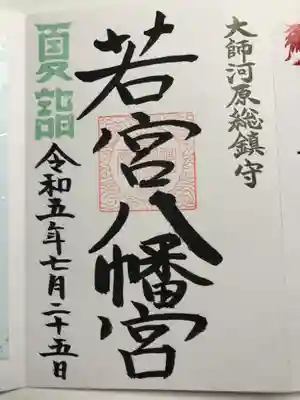 大師河原総鎮守
若宮八幡宮
夏詣
令和五年七月二十五日